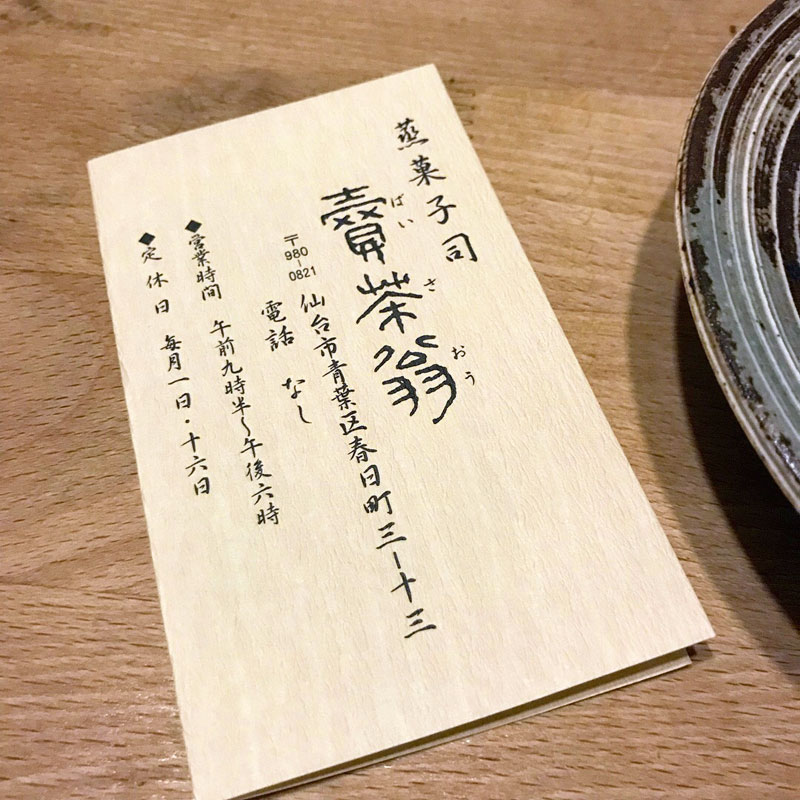 蒸菓子司
賣茶翁
ばい さ おう
〒980-0821
仙台市青葉区春日町三ー十三
電話 なし
◆営業時間 午前九時半〜午後六時
◆定休日 毎月一日・十六日